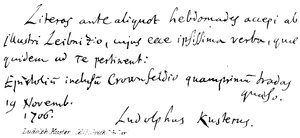 Literas ante aliquot hebdomades accepi ab
illustri Leibnizio, cujus ecce ipsissima verba, quae
quidem ad te pertinent:
Epistolium inclusum Crownfeldio quamprimum tradas
quaeso.
19 Novemb.
1706.
Ludolphus Kusterus.